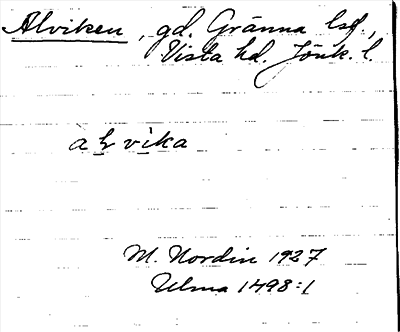 Alviken, gd. Gränna lsf.,
Vista hd. Jönk. l.
M. Nordin 1927
Ulma 1498:1